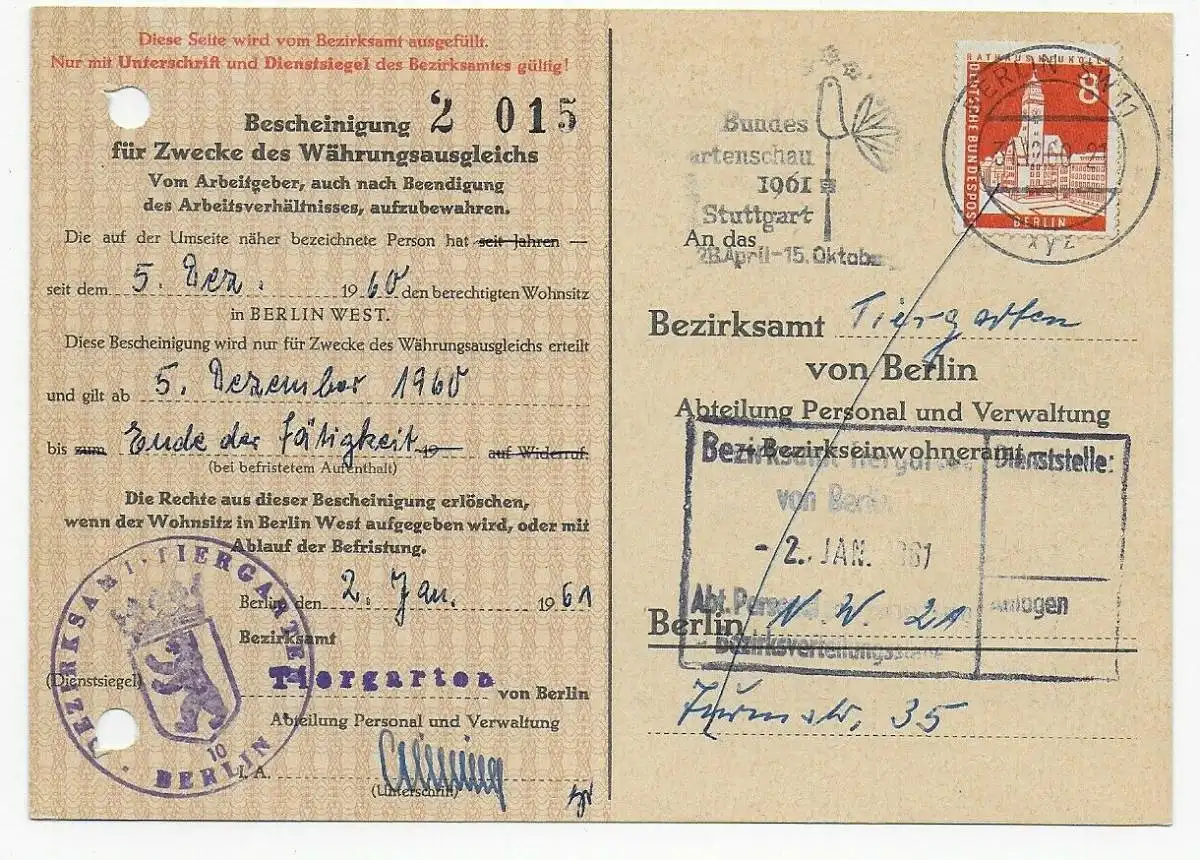 Diese Seite wird vom Bezirksamt ausgefüllt.
Nur mit Unterschrift und Dienstsiegel des Bezirksamtes gültig!
Bescheinigung 2 015
für Zwecke des Währungsausgleichs
Vom Arbeitgeber, auch nach Beendigung
des Arbeitsverhältnisses, aufzubewahren.
Die auf der Umseite näher bezeichnete Person hat seit Jahren —
seit dem 5. Dez. 1960 den berechtigten Wohnsitz
in BERLIN WEST.
Diese Bescheinigung wird nur für Zwecke des Währungsausgleichs erteilt
und gilt ab 5. Dezember 1960
bis zum Ende der Tätigkeit 19 auf Widerruf.
(bei befristetem Aufenthalt)
Die Rechte aus dieser Bescheinigung erlöschen,
wenn der Wohnsitz in Berlin West aufgegeben wird, oder mit
Ablauf der Befristung.
Berlin den 2. Jan. 1961
Bezirksamt
(Dienstsiegel)
Tiergarten von Berlin
Abteilung Personal und Verwaltung
I. A.
(Unterschrift)
BEZIRKSAMT TIERGARTEN
10
BERLIN
Bundes
artenschau
1961
Stuttgart
28.April-15. Oktober
RATHAUS NEUKÖLLN
DEUTSCHE BUNDESPOST
8
BERLIN
BERLIN SW 11
xyz
An das
Bezirksamt Tiergarten
von Berlin
Abteilung Personal und Verwaltung
- Bezirkseinwohneramt -
Bezirksamt Tiergarten
von Berlin
Dienststelle:
- 2. JAN. 1961
Abt. Personal
Anlagen
Berlin N.W. 21
Turmstr. 35